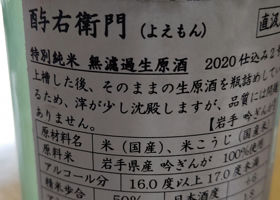 酉与右衛門(よえもん)
直汲
特別純米 無濾過生原酒 2020仕込み2
上槽した後、そのままの生原酒を瓶詰めして
るため、滓が少し沈殿しますが、品質には問題
ありません。
【岩手
原材料名 米(国産)、米こうじ(国産米)
原料米 岩手県産 吟ぎんが 100%使用
アルコール分 16.0度以上17.0度未満
精米歩合 50% 日本酒度